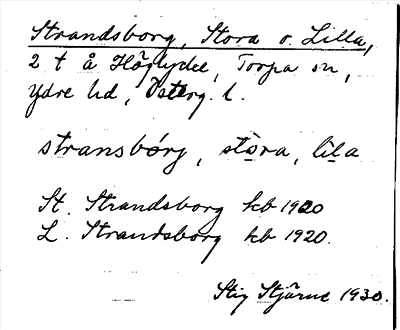 Strandsborg, Stora o. Lilla,
2 t å Höglycke, Torpa sn,
Ydre hd, Österg. l.
stransbórg, stòra, lìla
St. Strandsborg kb 1920
L. Strandsborg kb 1920.
Stig Stjärne 1930.